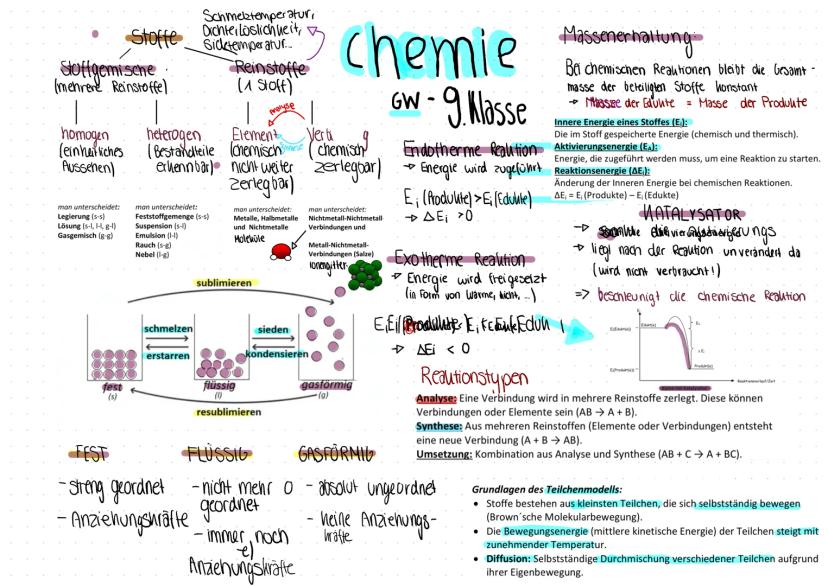 Stoffe
Schmelztemperatur,
Dichte, Löslichkeit,
Siedetemperatur...
Stoffgemische
(mehrere Reinstoffe)
Reinstoffe
(1 Stoff)
homogen
(einheitliches
Aussehen)
heterogen
(Bestandteile
erkennbar)
Analyse
Element
(chemisch
nicht weiter
zerlegbar)
(chemisch
zerlegbar)
man unterscheidet:
Legierung (s-s)
Lösung (s-l, l-l, g-l)
Gasgemisch (g-g)
man unterscheidet:
Feststoffgemenge (s-s)
Suspension (s-l)
Emulsion (l-l)
Rauch (s-g)
Nebel (l-g)
man unterscheidet:
Metalle, Halbmetalle
und Nichtmetalle
Moleküle
man unterscheidet:
Nichtmetall-Nichtmetall-
Verbindungen und
Metall-Nichtmetall-
Verbindungen (Salze)
Ionengitter
sublimieren
schmelzen
erstarren
sieden
kondensieren
fest
(s)
flüssig
(l)
gasförmig
(g)
resublimieren
FEST
- streng geordnet
- Anziehungskräfte
FLÜSSIG
- nicht mehr
geordnet
- immer noch
Anziehungskräfte
GASFÖRMIG
- absolut ungeordnet
- keine Anziehungs-
kräfte
chemie
GW - 9. Klasse
Endotherme Reaktion
→ Energie wird zugeführt
Ei (Produkte) > Ei (Edukte)
→ ΔEi > 0
Exotherme Reaktion
→ Energie wird freigesetzt
(in Form von Wärme, Licht, ...)
→ ΔEi < 0
Reaktionstypen
Analyse: Eine Verbindung wird in mehrere Reinstoffe zerlegt. Diese können
Verbindungen oder Elemente sein (AB → A + B).
Synthese: Aus mehreren Reinstoffen (Elemente oder Verbindungen) entsteht
eine neue Verbindung (A + B → AB).
Umsetzung: Kombination aus Analyse und Synthese (AB + C → A + BC).
Massenerhaltung:
Bei chemischen Reaktionen bleibt die Gesamt-
masse der beteiligten Stoffe konstant
→ Masse der Edukte = Masse der Produkte
Innere Energie eines Stoffes (Ei):
Die im Stoff gespeicherte Energie (chemisch und thermisch).
Aktivierungsenergie (EA):
Energie, die zugeführt werden muss, um eine Reaktion zu starten.
Reaktionsenergie (ΔEi):
Änderung der Inneren Energie bei chemischen Reaktionen.
ΔEi = Ei (Produkte) – Ei (Edukte)
KATALYSATOR
→ liegt nach der Reaktion unverändert da
(wird nicht verbraucht!)
=> beschleunigt die chemische Reaktion
Ei(Edukte)
Edukt(e)
Ei(Produkte)
Produkt(e)
Reaktionsverlauf/Zeit
Grundlagen des Teilchenmodells:
• Stoffe bestehen aus kleinsten Teilchen, die sich selbstständig bewegen
(Brown´sche Molekularbewegung).
• Die Bewegungsenergie (mittlere kinetische Energie) der Teilchen steigt mit
zunehmender Temperatur.
• Diffusion: Selbstständige Durchmischung verschiedener Teilchen aufgrund
ihrer Eigenbewegung.